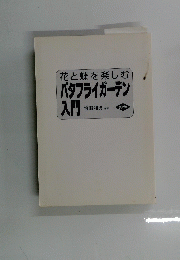 花と蝶を楽しむ
バタフライガーデン
入門